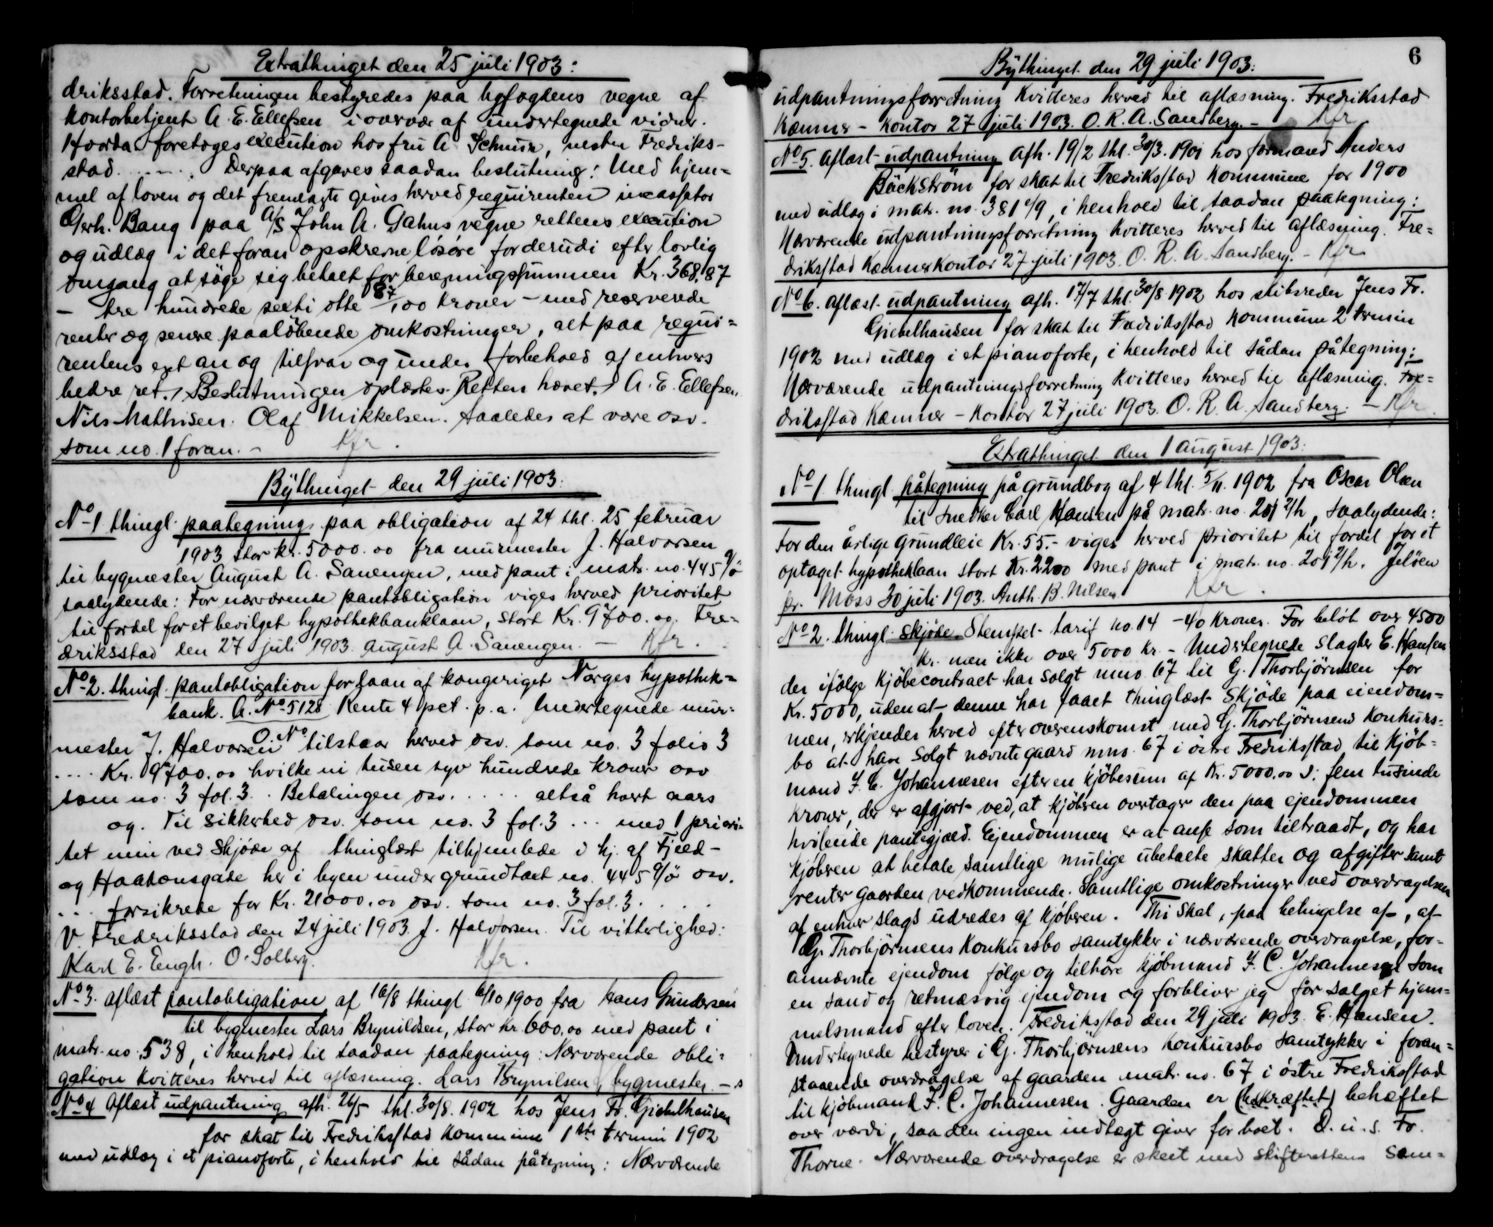 Extrathinget den 25 juli 1903:
driksstad. Forretningen bestyredes paa byfogdens vegne af
kontorbetjent A. E. Ellefsen i overvær af undertegnede vidner.
Hvorda foretoges execution hos fru A. Schmidt, vestre Fredriks-
stad ..... Derpaa afgaves saadan beslutning: Med hjem-
mel af loven og det fremlagte gives herved requirenten incassator
Gerh. Bang paa A/S John A. Gahns vegne rettens execution
og udlæg i det foran opskrevne løsøre for derudi efter lovlig
omgang at søge sig betalt for beregningssummen Kr. 368.87
– tre hundrede sexti otte 87/100 kroner – med reserverede
renter og senere paaløbende omkostninger, alt paa requi-
rentens eget an og tilsvar og under forbehold af enhvers
bedre ret. / Beslutningen oplæstes. Retten hævet. A. E. Ellefsen.
Nils Mathisen. Olaf Mikkelsen. Saaledes at være osv.
som no. 1 foran. – Kfr.
Bythinget den 29 juli 1903.
No 1 thingl. paategning paa obligation af 24 thl. 25 februar
1903 stor kr. 5000.00 fra murmester J. Halvorsen
til bygmester August A. Sanengen, med pant i matr. no. 445 g/ø
saalydende: For nærværende pantobligation viges herved prioritet
til fordel for et bevilget hypothekbanklaan, stort Kr. 9700.00. Fre-
driksstad den 27 juli 1903. August A. Sanengen. – Kfr.
No 2. thingl. pantobligation for laan af kongeriget Norges hypothek-
bank. A. No 5128 Rente 4 pct. p. a. Undertegnede mur-
O. No
mester J. Halvorsen tilstaar herved osv. som no. 3 folio 3
.... Kr. 9700.00 hvilke ni tusen syv hundrede kroner osv
som no. 3 fol. 3 .. Betalingen osv. .... altså hvert aars
og. Til sikkerhed osv. som no. 3 fol. 3 ... med 1 priori-
tet min ved skjøde af thinglæst tilhjemlede i hj. af Fjeld-
og Haakonsgade her i byen under grundtaxt no. 445 g/ø osv.
... forsikrede for Kr. 21000.00 osv. som no. 3 fol. 3. ....
Fredriksstad den 24 juli 1903. J. Halvorsen. Til vitterlighed:
Karl E. Engh. O. Solberg. Kfr.
No 3. aflæst pantobligation af 16/8 thingl 6/10 1900 fra Hans Gundersen
til bygmester Lars Brynildsen, stor kr. 600.00 med pant i
matr. no. 538, i henhold til saadan paategning: Nærværende obli-
gation kvitteres herved til aflæsning. Lars Brynilsen bygmester. –
No 4 Aflæst udpantning afh. 26/5 thl. 30/8. 1902 hos Jens Fr. Gichelhausen
for skat til Fredriksstad kommune 1ste termin 1902
med udlæg i et pianoforte, i henhold til sådan påtegning: Nærværende
6
Bythinget den 29 juli 1903.
udpantningsforretning kvitteres herved til aflæsning. Fredriksstad
Kæmner – kontor 27 juli 1903. O. R. A. Sandberg. – Kfr
No 5. Aflæst udpantning afh. 19/2 thl. 30/3. 1901 hos formand Anders
Bäckström for skat til Fredriksstad kommune for 1900
med udlæg i matr. no. 381 c/9, i henhold til saadan paategning:
Nærværende udpantningsforretning kvitteres herved til aflæsning. Fre-
driksstad Kæmnerkontor 27 juli 1903. O. R. A. Sandberg. – Kfr
No 6. aflæst. udpantning afh. 17/7 thl. 30/8 1902 hos skibsreder Jens Fr.
Gichelhausen for skat til Fredriksstad kommune 2 termin
1902 med udlæg i et pianoforte, i henhold til sådan påtegning:
Nærværende udpantningsforretning kvitteres herved til aflæsning. Fre-
driksstad Kæmner – kontor 27 juli 1903. O. R. A. Sandberg. – Kfr.
Extrathinget den 1 august 1903.
No 1 thingl. påtegning på grundbog af 4 thl. 5/11. 1902 fra Oscar Olsen
til snedker Carl Hansen på matr. no. 201 2/h, saalydende:
For den årlige grundleie Kr. 55. – viges herved prioritet til fordel for et
optaget hypotheklaan stort Kr. 2200 med pant i matr. no. 201 2/h. Jeløen
pr. Moss 30 juli 1903. Anth. B. Nilsen Kfr.
No 2. thingl. skjøde Stempel- tarif no. 14 – 40 kroner. For beløb over 4500
kr. men ikke over 5000 kr. – Undertegnede slagter E. Hansen
der ifølge kjøbecontract har solgt mno. 67 til G. Thorbjørnsen for
Kr. 5000, uden at denne har faaet thinglæst skjøde paa eiendom-
men, erkjendes herved efter overenskomst med G. Thorbjørnsens konkurs-
bo at have solgt nævnte gaard mno. 67 i østre Fredriksstad til kjøb-
mand F. C. Johannesen efter en kjøbesum af Kr. 5000.00 ɔ: fem tusinde
kroner, der er afgjort ved, at kjøberen overtager den paa ejendommen
hvilende pantegjæld. Eiendommen er at anse som tiltraadt, og har
kjøberen at betale samtlige mulige ubetalte skatter og afgifter samt
renter gaarden vedkommende. Samtlige omkostninger ved overdragelsen
af enhver slags udredes af kjøberen. Thi skal, paa betingelse af, at
G. Thorbjørnsens konkursbo samtykker i nærværende overdragelse, for-
annævnte ejendom følge og tilhøre kjøbmand F. C. Johannesen som
en sand og retmæssig ejendom og forbliver jeg for salget hjem-
melsmand efter loven. Fredriksstad den 29 juli 1903. E. Hansen.
Undertegnede bestyrer i G. Thorbjørnsens konkursbo samtykker i foran-
staaende overdragelse af gaarden matr. no. 67 i østre Fredriksstad
til kjøbmand F. C. Johannesen. Gaarden er (bekræftet) behæftet
over værdi, saa den ingen indtægt giver for boet. D. u. s. Fr.
Thorne. Nærværende overdragelse er skeet med skifterettens sam-